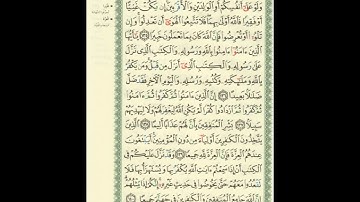 وَلَوْ عَلَىٰٓ أَنفُسِكُمْ أَوِ ٱلْوَٰلِدَيْنِ وَٱلْأَقْرَبِينَ إِن يَكُنْ غَنِيًّا
أَوْ فَقِيرًا فَٱللَّهُ أَوْلَىٰ بِهِمَا فَلَا تَتَّبِعُوا۟ ٱلْهَوَىٰٓ أَن تَعْدِلُوا۟ وَإِن
تَلْوُۥٓا۟ أَوْ تُعْرِضُوا۟ فَإِنَّ ٱللَّهَ كَانَ بِمَا تَعْمَلُونَ خَبِيرًا ١٣٥ يَـٰٓأَيُّهَا
ٱلَّذِينَ ءَامَنُوٓا۟ ءَامِنُوا۟ بِٱللَّهِ وَرَسُولِهِۦ وَٱلْكِتَـٰبِ ٱلَّذِى نَزَّلَ
عَلَىٰ رَسُولِهِۦ وَٱلْكِتَـٰبِ ٱلَّذِىٓ أَنزَلَ مِن قَبْلُ وَمَن يَكْفُرْ
بِٱللَّهِ وَمَلَـٰٓئِكَتِهِۦ وَكُتُبِهِۦ وَرُسُلِهِۦ وَٱلْيَوْمِ ٱلْـَٔاخِرِ فَقَدْ ضَلَّ
ضَلَـٰلًۢا بَعِيدًا ١٣٦ إِنَّ ٱلَّذِينَ ءَامَنُوا۟ ثُمَّ كَفَرُوا۟ ثُمَّ ءَامَنُوا۟
ثُمَّ كَفَرُوا۟ ثُمَّ ٱزْدَادُوا۟ كُفْرًا لَّمْ يَكُنِ ٱللَّهُ لِيَغْفِرَ لَهُمْ وَلَا لِيَهْدِيَهُمْ
سَبِيلًۢا ١٣٧ بَشِّرِ ٱلْمُنَـٰفِقِينَ بِأَنَّ لَهُمْ عَذَابًا أَلِيمًا ١٣٨ ٱلَّذِينَ
يَتَّخِذُونَ ٱلْكَـٰفِرِينَ أَوْلِيَآءَ مِن دُونِ ٱلْمُؤْمِنِينَ أَيَبْتَغُونَ
عِندَهُمُ ٱلْعِزَّةَ فَإِنَّ ٱلْعِزَّةَ لِلَّهِ جَمِيعًا ١٣٩ وَقَدْ نَزَّلَ عَلَيْكُمْ فِى
ٱلْكِتَـٰبِ أَنْ إِذَا سَمِعْتُمْ ءَايَـٰتِ ٱللَّهِ يُكْفَرُ بِهَا وَيُسْتَهْزَأُ بِهَا فَلَا
تَقْعُدُوا۟ مَعَهُمْ حَتَّىٰ يَخُوضُوا۟ فِى حَدِيثٍ غَيْرِهِۦٓ إِنَّكُمْ إِذًا مِّثْلُهُمْ
إِنَّ ٱللَّهَ جَامِعُ ٱلْمُنَـٰفِقِينَ وَٱلْكَـٰفِرِينَ فِى جَهَنَّمَ جَمِيعًا ١٤٠